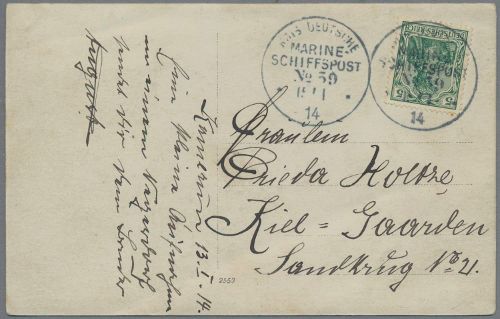 KAIS. DEUTSCHE
MARINE-
SCHIFFSPOST
No 59
14
DEUTSCHES REICH
5 5
14
Fräulein
Frieda Holtze,
Kiel=Gaarden
Sandkrug No 21.
Kamerun 13.I.14.
Eine kleine Aufnahme
von einem Negerdorf
sendet dir dein Bruder
August
2557